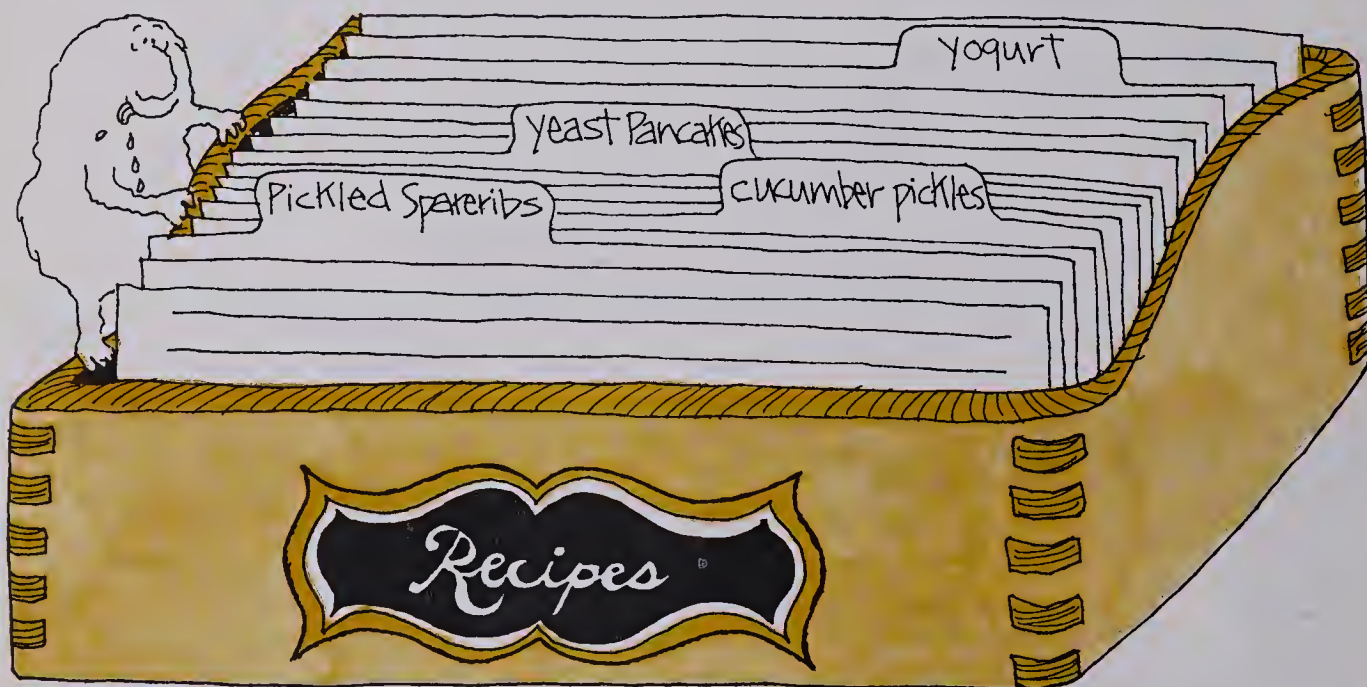 yogurt
yeast Pancakes
Pickled Spareribs
cucumber pickles
Recipes